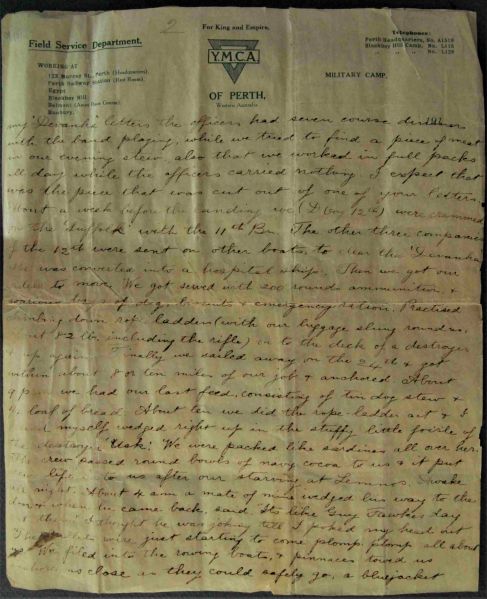 2
For King and Empire.
Field Service Department.
Telephones:
Perth Headquarters, No. A1519
Blackboy Hill Camp, No. L118
" " " No. L129
WORKING AT
Perth (Headquarters)
Perth Railway Station (Rest Room).
Egypt
Blackboy Hill
Belmont
Bunbury.
Y.M.C.A.
MILITARY CAMP.
OF PERTH,
Western Australia
my "Devanha" letters the officers had seven course dinners
with the band playing, while we tried to find a piece of meat
in our evening stew, also that we worked in full packs
all day while the officers carried nothing. I expect that
was the piece that was cut out of one of your letters.
About a week before the landing we (D Coy 12th) were crammed
on the "Suffolk" with the 11th Bn. The other three companies
of the 12th were sent on other boats, to clear the "Devanha"
was converted into a hospital ship. Then we got our
to move. We got served with 200 rounds ammunition, &
rations of dog biscuits & emergency ration. Practised
climbing down rope ladders (with our luggage slung round us,
82 lbs, including the rifle) on to the deck of a destroyer
& up again. Finally we sailed away on the 24th & got
within about 8 or ten miles of our job & anchored. About
9 pm we had our last feed, consisting of tin dog stew &
loaf of bread. About ten we did the rope-ladder act & I
myself wedged right up in the stuffy little of
the destroyer "Usk". We were packed like sardines all over her.
crew passed round bowls of navy cocoa to us & it put
life to us after our starving at Lemnos. I woke
night. About 4 am a mate of mine wedged his way to the
& when he came back, said "Its like Guy Fawkes day
I thought he was joking till I poked my head out
were just starting to come plomp, plomp all about
We filed into the rowing boats, & pinnaces towed us
as close as they could safely go, a bluejacket